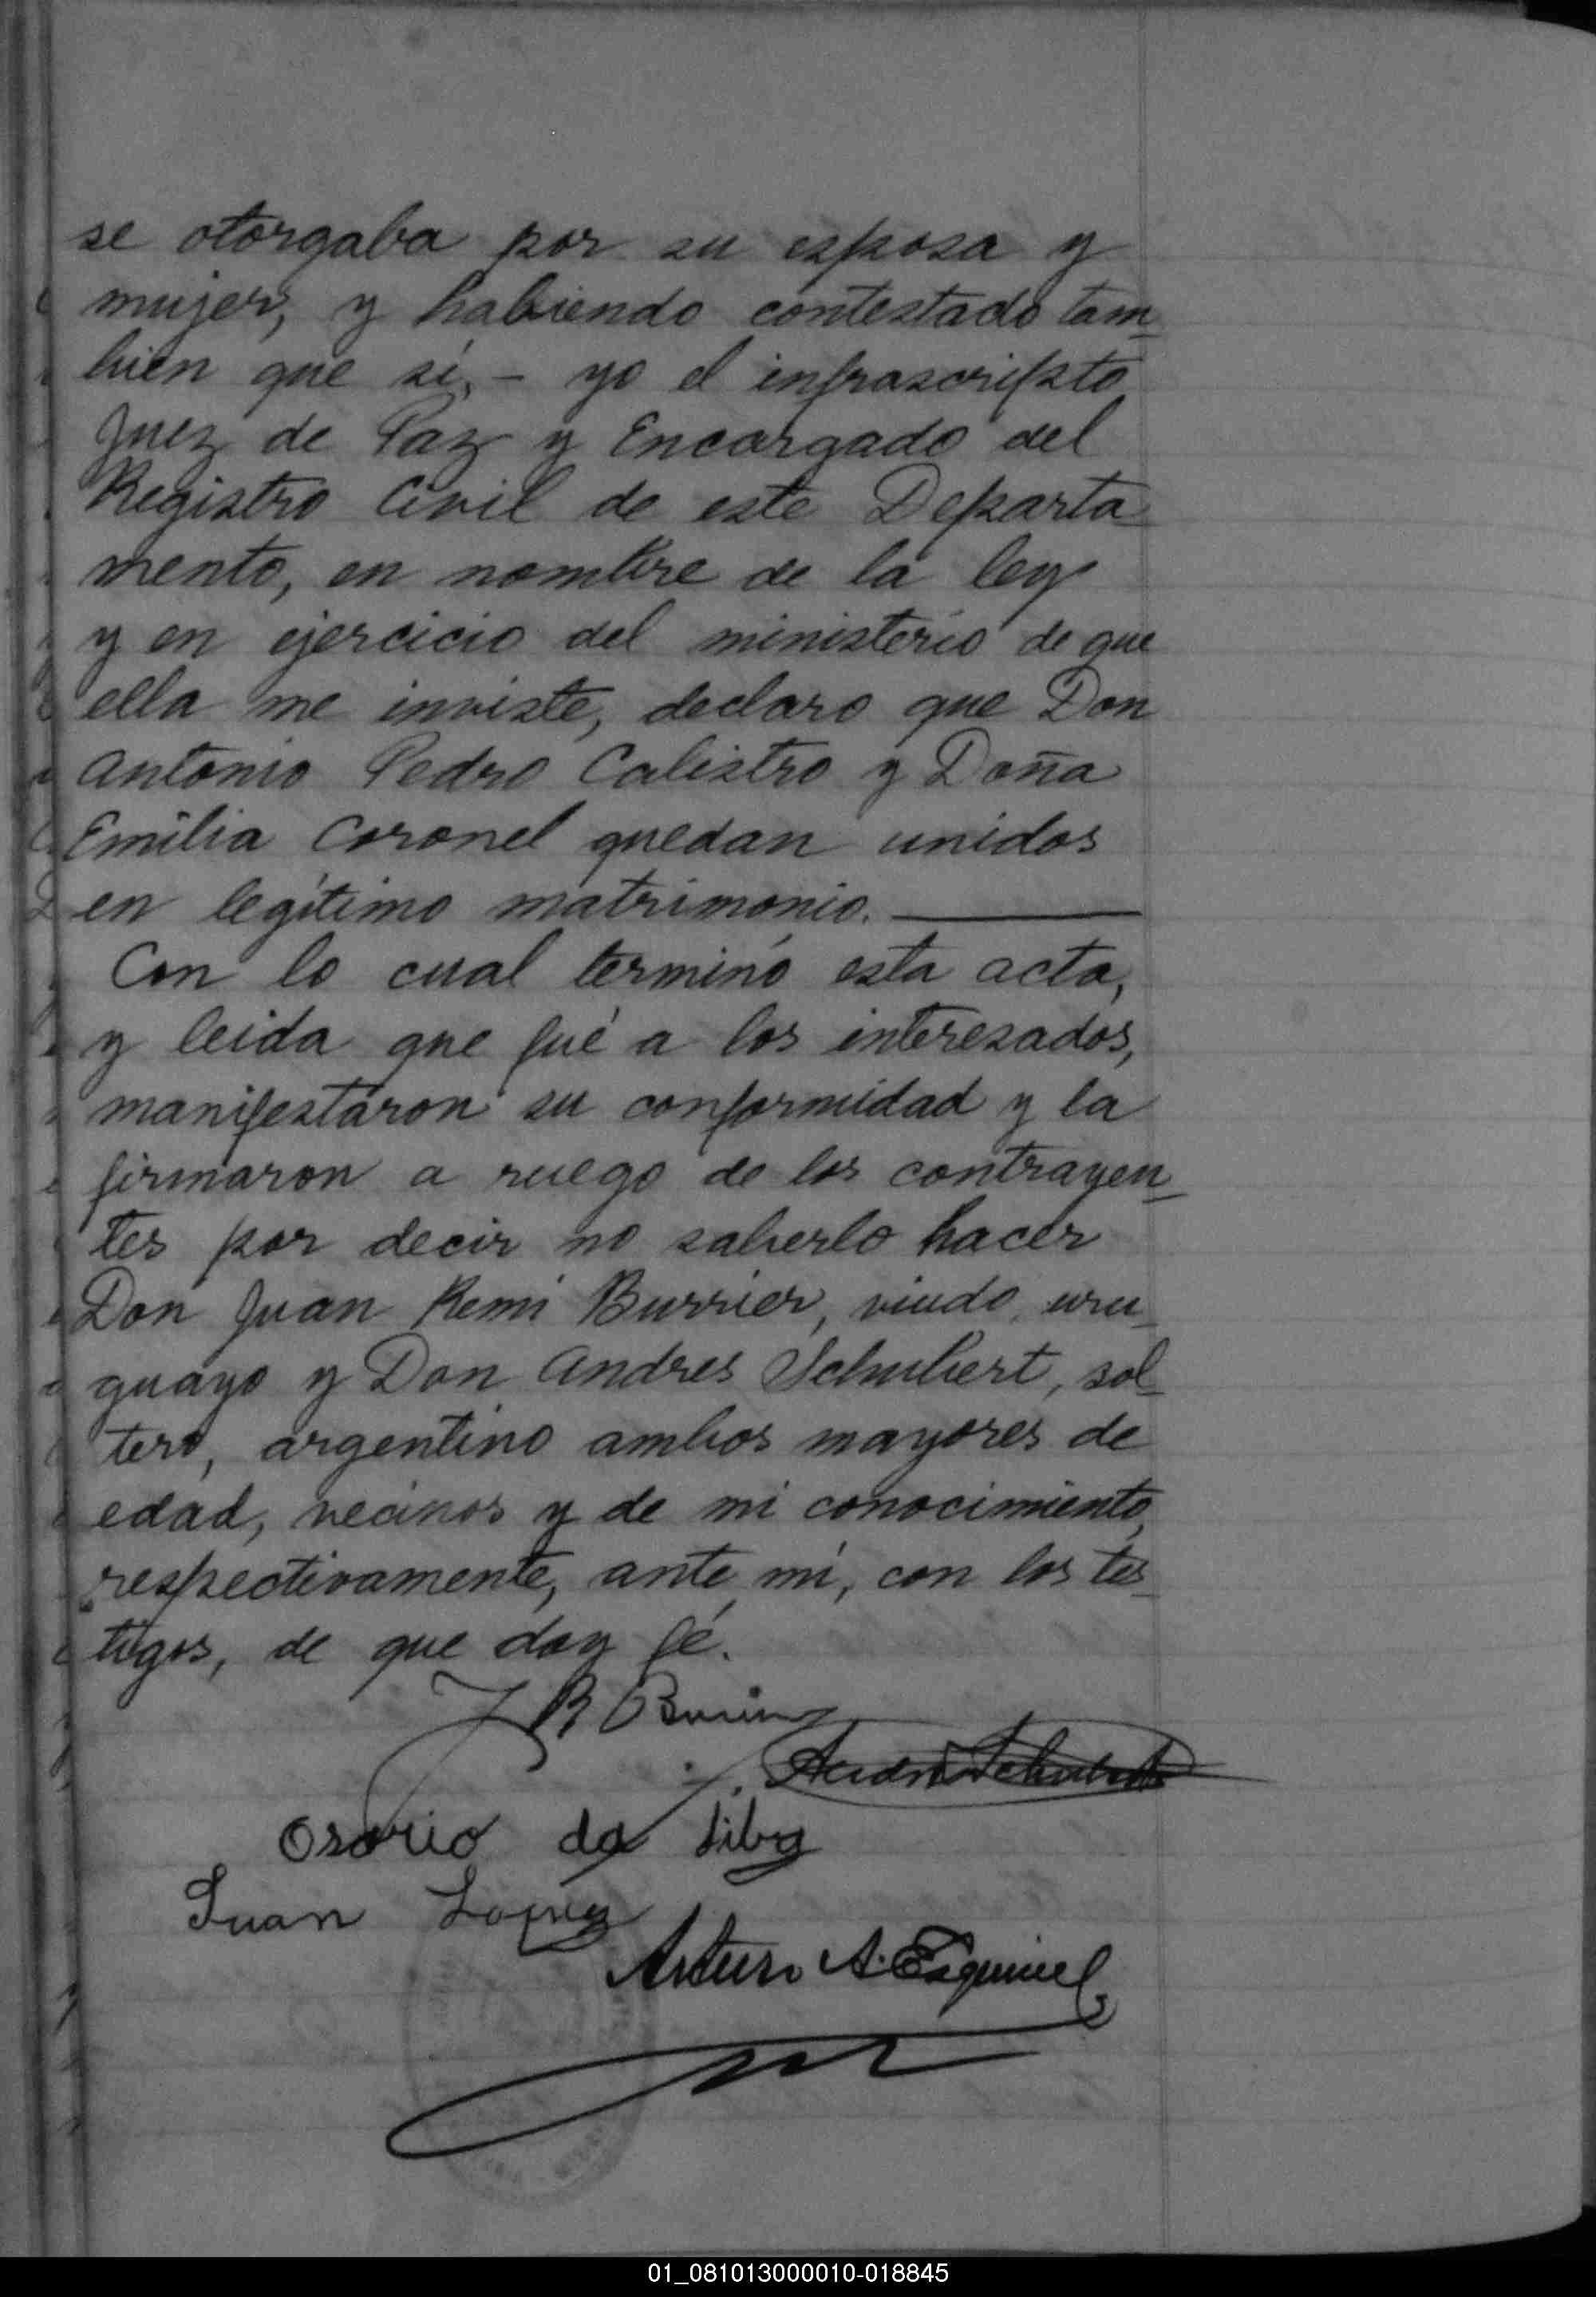 se otorgaba por su esposa y
mujer, y habiendo contestado tam-
bien que si, - yo el infrascripto
Juez de Paz y Encargado del
Registro Civil de este Departa-
mento, en nombre de la ley
y en ejercicio del ministerio de que
ella me inviste, declaro que Don
Antonio Pedro Calistro y Doña
Emilia Coronel quedan unidos
en legítimo matrimonio.
Con lo cual terminó esta acta,
y leida que fué a los interesados,
manifestaron su conformidad y la
firmaron a ruego de los contrayen-
tes por decir no saberlo hacer
Don Juan Remi Burrier, viudo, uru-
guayo y Don Andres Schubert, sol-
tero, argentino ambos mayores de
edad, vecinos y de mi conocimiento,
respectivamente, ante mi, con los tes-
tigos, de que doy fé.
J R Burrier
Andres Schubert
Osorio da Silva
Juan Lopez
Arturo A. Esquivel
01_081013000010-018845